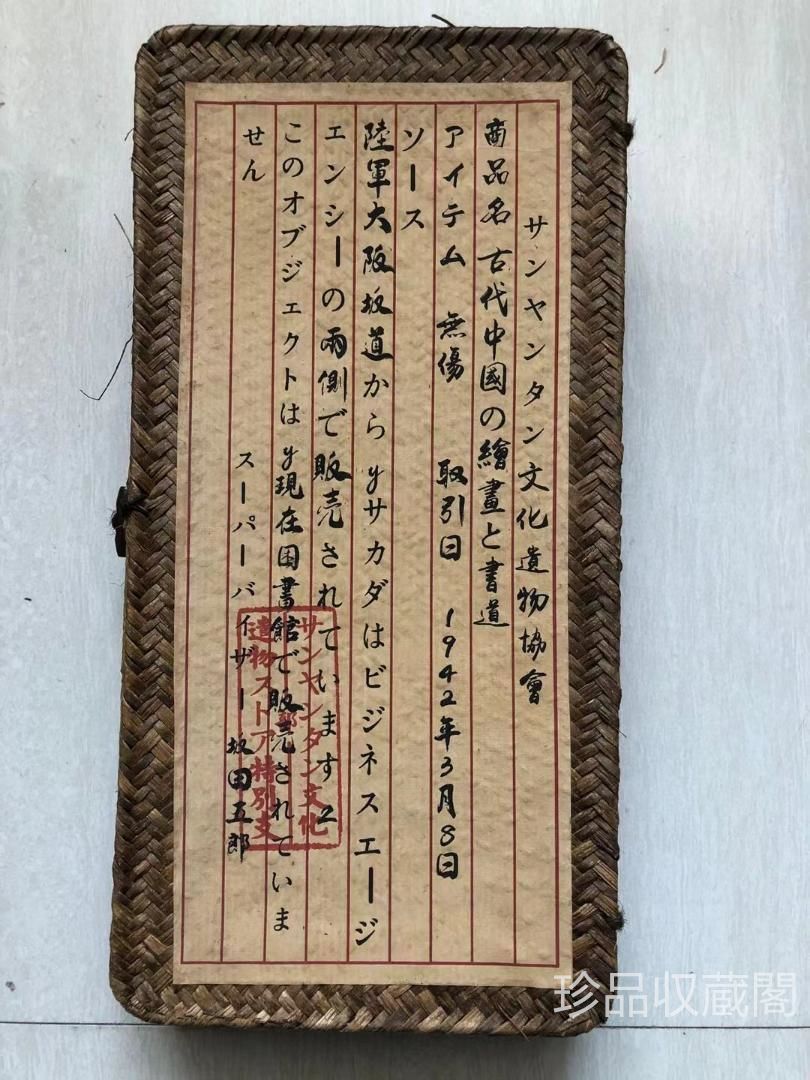 サンヤンタン文化遺物協會
商品名 古代中國の繪畫と書道
アイテム 無傷 取引日 1942年3月8日
ソース
陸軍大阪坂道からyサカダはビジネスエージ
ェンシーの両側で販売されています2
このオブジェクトはy現在図書館で販売されていま
せん
スーパーバイザー 坂田五郎
サンヤンタン文化
遺物ストア特別支
部
珍品收藏閣